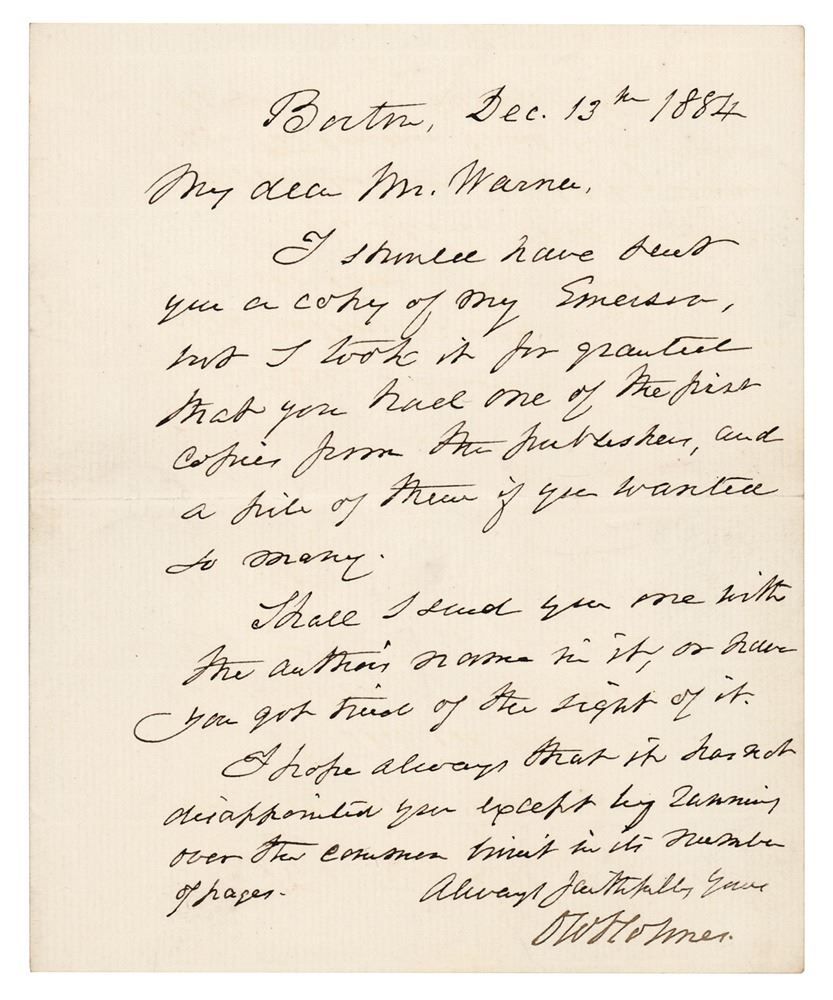 Boston, Dec. 13th 1884
My dear Mr. Warner,
I should have sent
you a copy of my Emerson,
but I took it for granted
that you had one of the first
copies from the publishers, and
a pile of them if you wanted
so many.
Shall I send you one with
the author's name in it, or have
you got tired of the sight of it.
I hope always that it has not
disappointed you except by running
over the common limit in its number
of pages.
Always faithfully yours
O W Holmes.